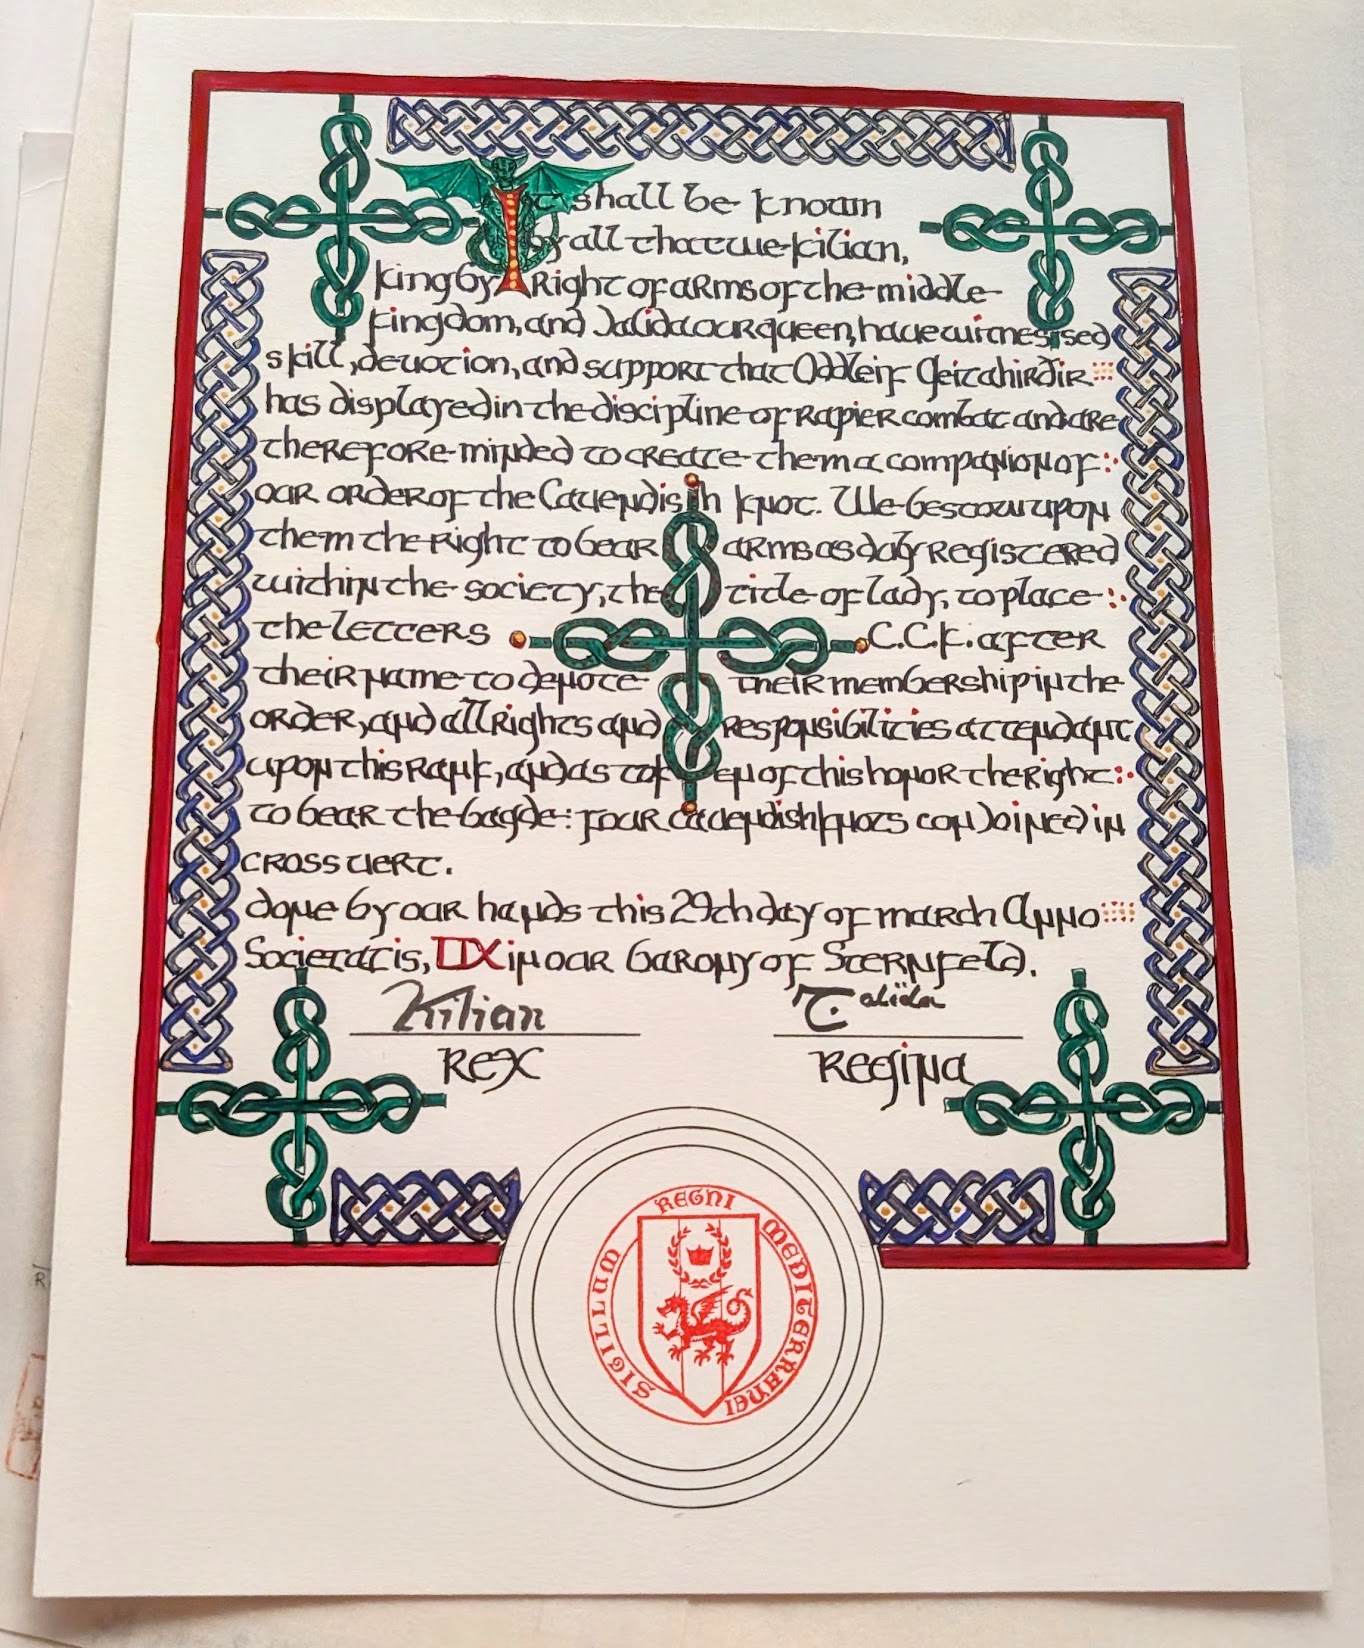 It shall be known
by all that we Kilian,
king by Right of arms of the middle
kingdom, and Jalida our queen, have witnessed
skill, devotion, and support that Oddleif Geitahirdir
has displayed in the discipline of rapier combat and are
therefore minded to create them a companion of
our order of the Cavendish knot. We bestow upon
them the right to bear arms as duly registered
within the society, the title of lady, to place
the letters C.C.K. after
their name to denote their membership in the
order, and all rights and responsibilities attendant
upon this rank, and as token of this honor the right
to bear the bagde: four cavendish knots conjoined in
cross vert.
done by our hands this 29th day of march Anno
Societatis, LIX in our barony of Sternfeld.
Kilian
Rex Regina
SIGILLUM REGNI MEDITERRANEI